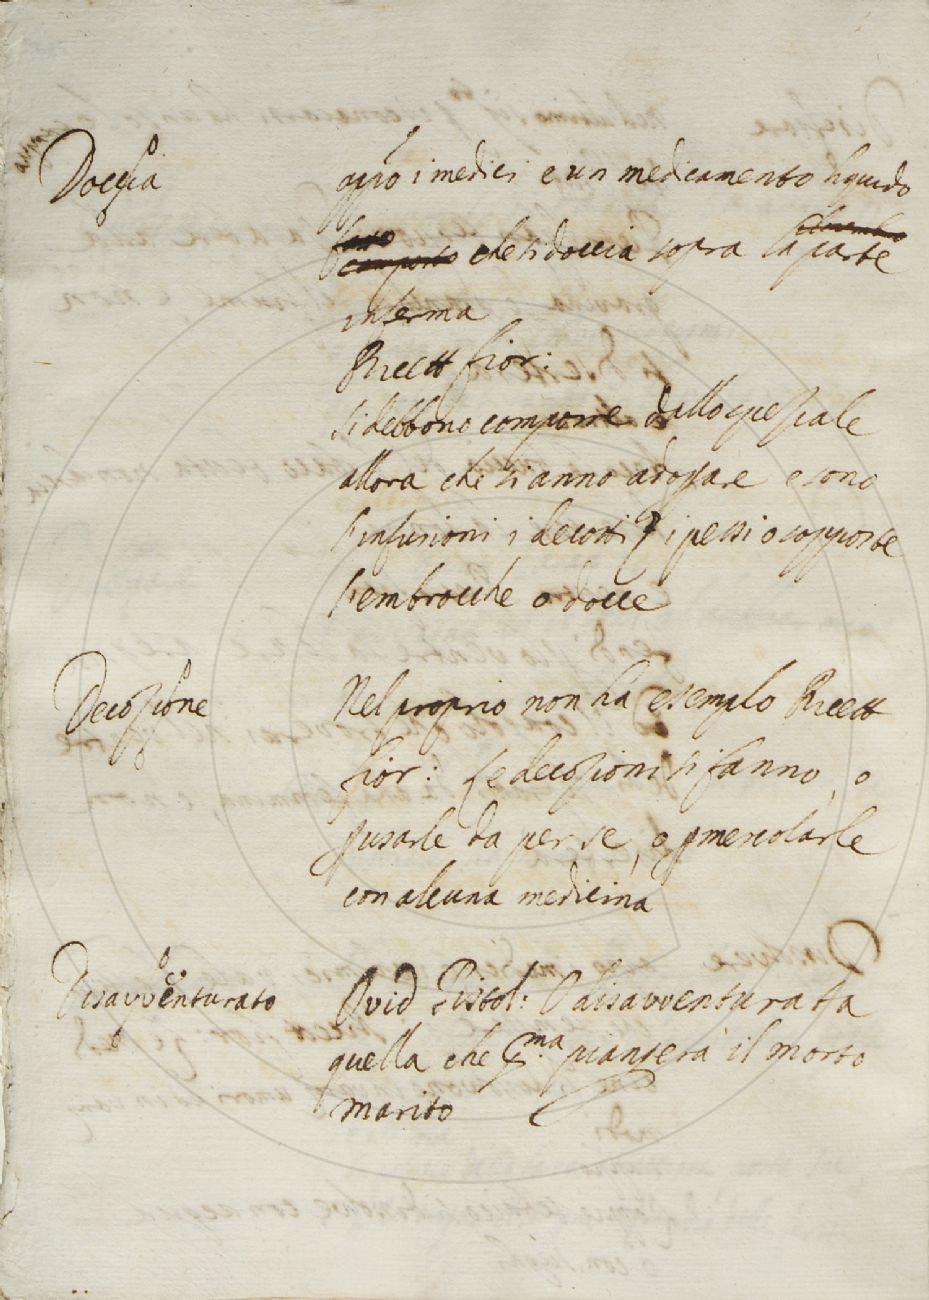 Doccia
app͂o i medici e un medicamento liquido
fatto
composto che si doccia sopra la parte
inferma
Ricett fior:
si debbono comporre dallo speziale
allora che si anno a dosare e sono
l'infusioni i decotti i pessi o sopposte
l'embrocche o docce
Decozione
Nel proprio non ha esempio Ricett
fior: Le decozioni si fanno, o
p usarle da per se, o p mescolarle
con alcuna medicina
Disavventurato
Ovid Pistol: O disavventurata
quella che p.ma piantera il morto
marito